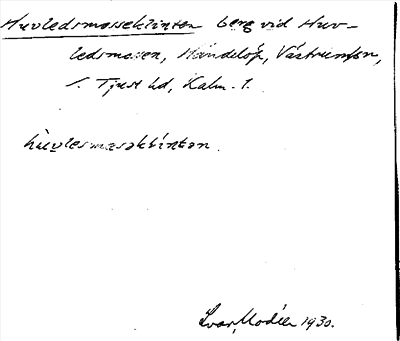 Huvledsmosseklinten berg vid Huv-
ledsmossen, Händelöp, Västrum sn,
S. Tjust hd, Kalm. l.
hùvlesmɷsəklintən.
Ivar Modéer 1930.